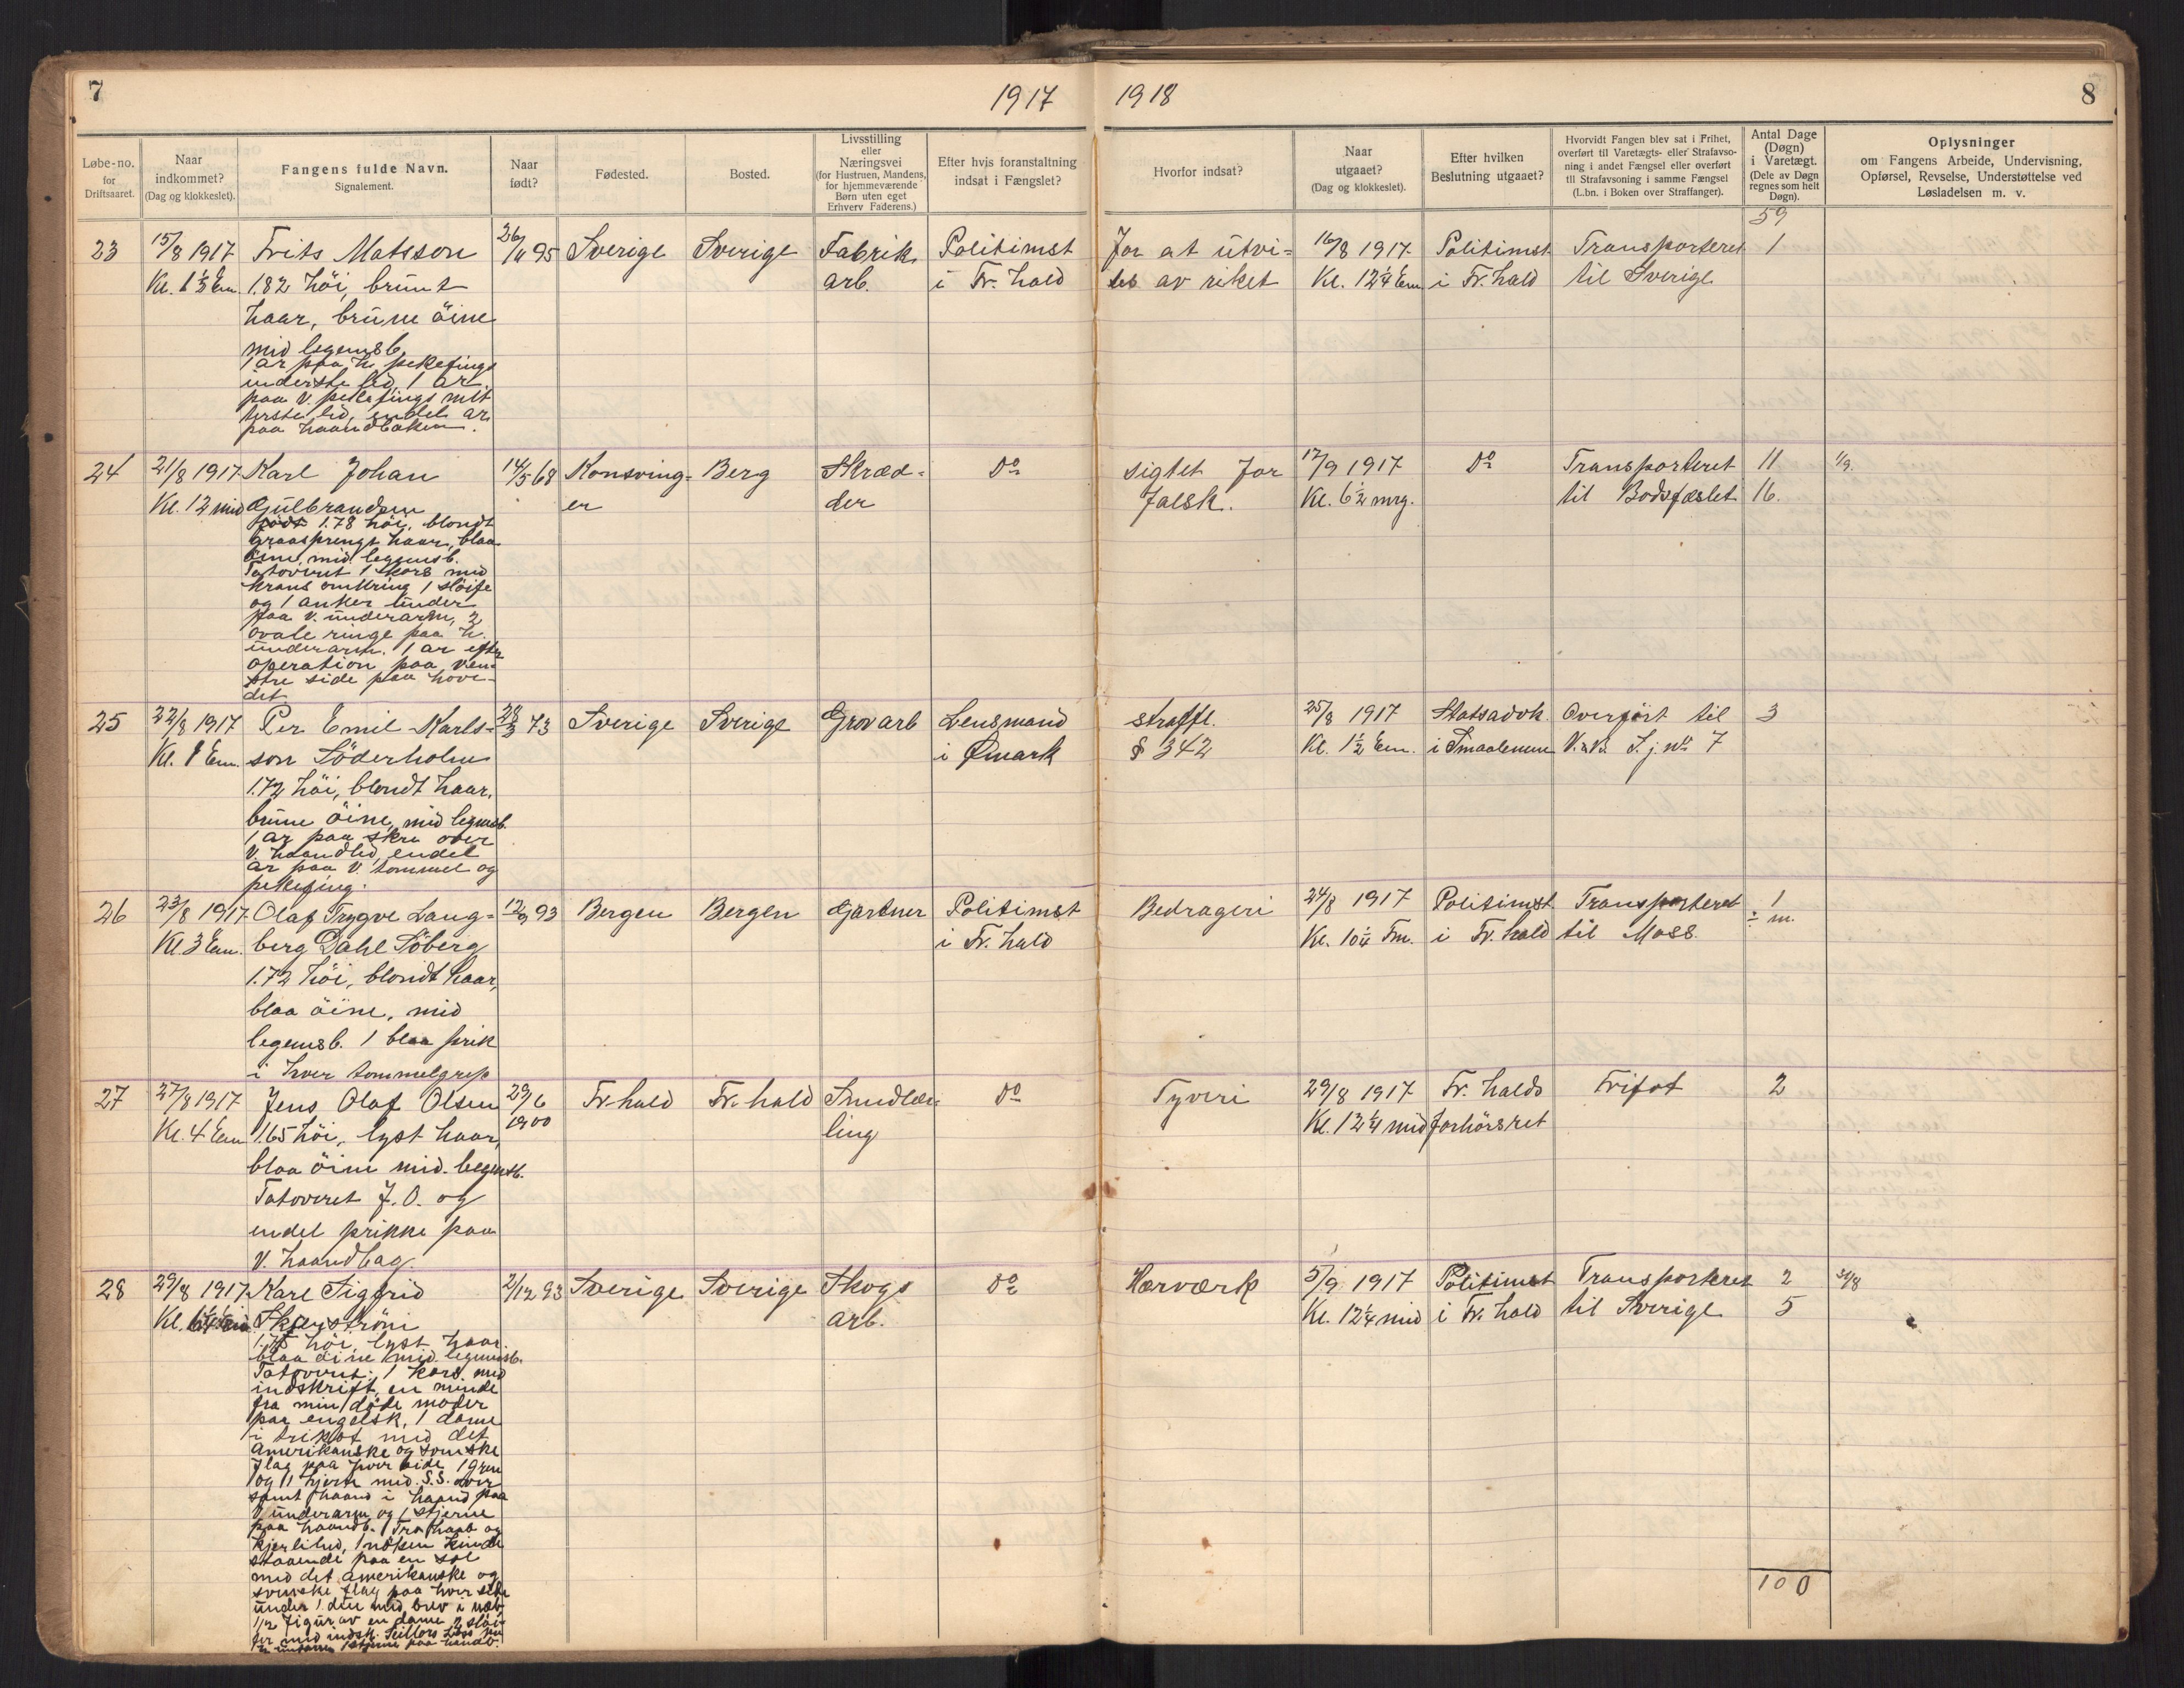 7
1917
1918
8
Løbe-no. for Driftsaaret.
Naar indkommet? (Dag og klokkeslet).
Fangens fulde Navn. Signalement.
Naar født?
Fødested.
Bosted.
Livsstilling eller Næringsvei (for Hustruen, Mandens, for hjemmeværende Børn uten eget Erhverv Faderens.)
Efter hvis foranstaltning indsat i Fængslet?
Hvorfor indsat?
Naar utgaaet? (Dag og klokkeslet).
Efter hvilken Beslutning utgaaet?
Hvorvidt Fangen blev sat i Frihet, overført til Varetægts- eller Strafavsoning i andet Fængsel eller overført til Strafavsoning i samme Fængsel (L.bn. i Boken over Straffanger).
Antal Dage (Døgn) i Varetægt. (Dele av Døgn regnes som helt Døgn).
Oplysninger om Fangens Arbeide, Undervisning, Opførsel, Revselse, Understøttelse ved Løsladelsen m. v.
59
23 15/8 1917 Frits Matsson 26/11 95 Sverige Sverige Fabrik Politimst For at utvi= 16/8 1917 Politimst Transporteret 1
Kl. 1 1/2 Em. 1.82 höi, brunt arb. i Fr. hald ses av riket Kl. 12 1/4 Em i Fr. hald til Sverige
haar, brune öine
mid legemsb.
1 ar paa h. pekefings
underste led, 1 ar.
paa V. pekefings mit
terste led, endel ar
paa haandbaken.
24 21/8 1917 Karl Johan 14/5 68 Konsving= Berg Skræd= do sigtet for 17/9 1917 do Transporteret 11 1/9.
Kl. 12 mid Gulbrandsen er der falsk. Kl. 6 1/2 mrg. til Bodsfæslet 16.
1.78 höi, blondt
graasprengt haar, blaa
öine, mid legemsb.
Tatoveret 1 kors med
krans omkring 1 slöife
og 1 anker under
paa V. underarm, 2
ovale ringe paa h.
underarm. 1 ar efter
operation paa ven=
stre side paa hove=
det
25 22/8 1917 Per Emil Karls= 28/3 73 Sverige Sverige Grovarb Lensmand straffl. 25/8 1917 Statsadvk Overfört til 3
Kl. 1 Em. son Söderholm i Ømark § 342 Kl. 1 1/2 Em. i Smaalenene V.&B. S.j. no 7
1.72 höi, blondt haar,
brune öine, mid legemsb.
1 ar paa skra over
V. haandled, endel
ar paa V. tommel og
pekefing.
26 23/8 1917 Olaf Trygve Lang= 12/9 93 Bergen Bergen Gartner Politimst Bedrageri 24/8 1917 Politimst Transporteret 1
Kl. 3 Em. berg Dahl Söberg i Fr. hald Kl. 10 1/4 Fm. i Fr. hald til Moss. m.
1.72 höi, blondt haar,
blaa öine, mid
legemsb. 1 blaa prik
i hver tommelgrep
27 27/8 1917 Jens Olaf Olsen 29/6 1900 Fr. hald Fr. hald Smedlær= do Tyveri 29/8 1917 Fr. halds Frifot 2
Kl. 4 Em 1.65 höi, lyst haar, ling Kl. 12 1/4 mid forhörsret
blaa öine mid. legemsb.
Tatoveret J. O. og
endel prikke paa
V. haandbag.
28 29/8 1917 Karl Sigfrid 2/12 93 Sverige Sverige Skogs do Hærværk 5/9 1917 Politimst Transporteret 2 30/8
Kl. Skjerström arb. Kl. 12 1/4 mid i Fr. hald til Sverige 5
1.75 höi, lyst haar
blaa öine mid. legemsb.
Tatoveret: 1 kors med
indskrift en minde
fra min döde moder
paa engelsk, 1 dame
i trikot med det
amerikanske og svenske
flag paa hver side 1 gren
og 1 hjerte med S.S. over
samt haand i haand paa
V. underarm og 1 stjerne
paa haandb. Tro haab og
kjerlihed, 1 nöken kvinde
staaende paa en sol
med det amerikanske og
svenske flag paa hver side
under 1 due med brev i næb
1/2 figur av en dame 2 slöi=
fer med indsk. Seillors Loss
1 stjerne paa haandb.
100